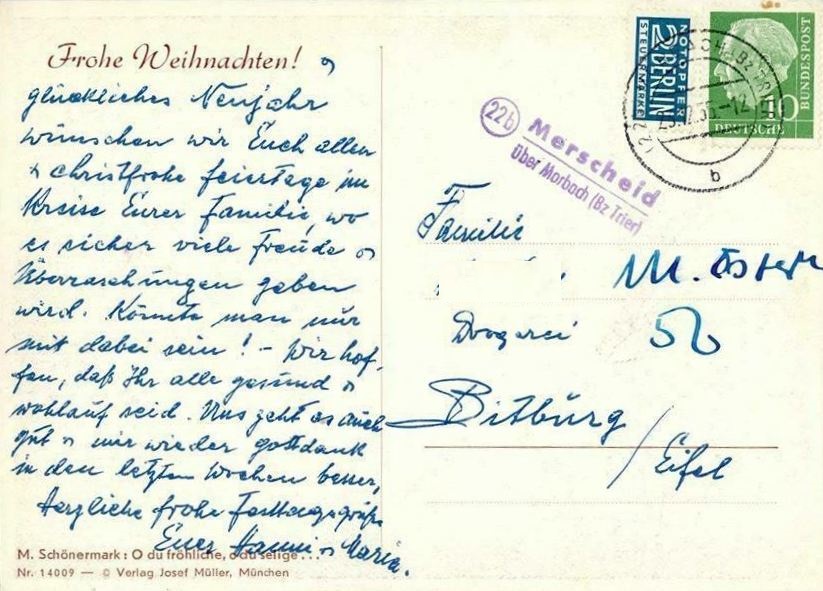 Frohe Weihnachten! u
glückliches Neujahr
wünschen wir Euch allen
+ christfrohe Feiertage im
Kreise Eurer Familie, wo
es sicher viele Freude u
Überraschungen geben
wird. Könnte man nur
mit dabei sein! - Wir hof-
fen, daß Ihr alle gesund u
wohlauf seid. Uns geht es auch
gut u mir wieder gottdank
in den letzten Wochen besser,
Herzliche frohe Festtagsgrüße
Euer Hanni u Maria.
M. Schönermark: O du fröhliche, o du selige...
Nr. 14009 — © Verlag Josef Müller, München
NOTOPFER
2 BERLIN
STEUERMARKE
10
DEUTSCHE
BUNDESPOST
b
22b
Merscheid
über Morbach (Bz Trier)
Familie
M.
Drogerei
50
Bitburg
/Eifel